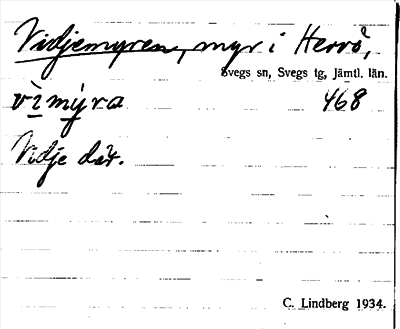 Vidjemyren, myr i Herrö,
Svegs sn, Svegs tg, Jämtl. län.
vìmýra 468
Vidje där.
C. Lindberg 1934.